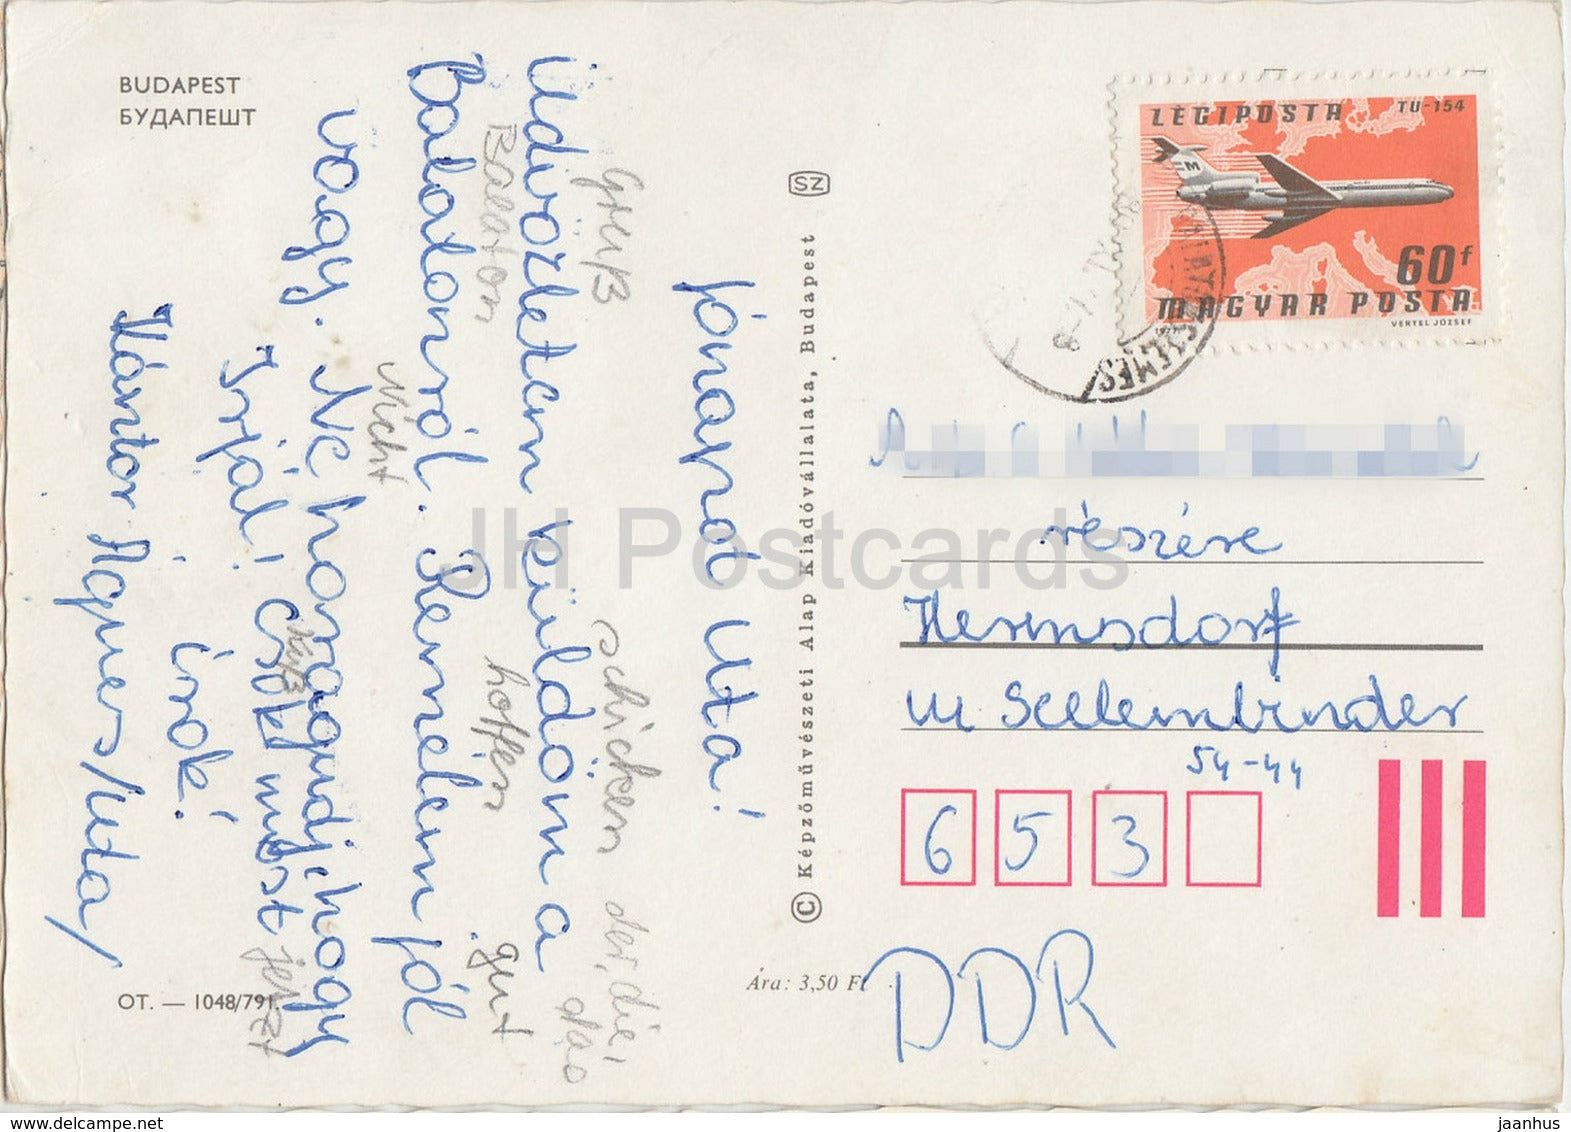 BUDAPEST
БУДАПЕШТ
Jónapot Uta!
Gruß schicken der, die, das
Üdvözletem küldöm a
Balaton hoffen gut
Balatonról. Remélem jól
vagy. Ne haragudj, hogy
Nicht
Írjál! csók most
Kuß jetzt
írok!
Kántor Ágnes/Uta/
OT. — 1048/791.
SZ
© Képzőművészeti Alap Kiadóvállalata, Budapest
Ára: 3,50 Ft
LÉGIPOSTA TU-154
60f
MAGYAR POSTA
1977 VERTEL JÓZSEF
részére
Hermsdorf
Seelenbinder
54-44
6 5 3
DDR
JH Postcards
www.delcampe.net
jaanhus